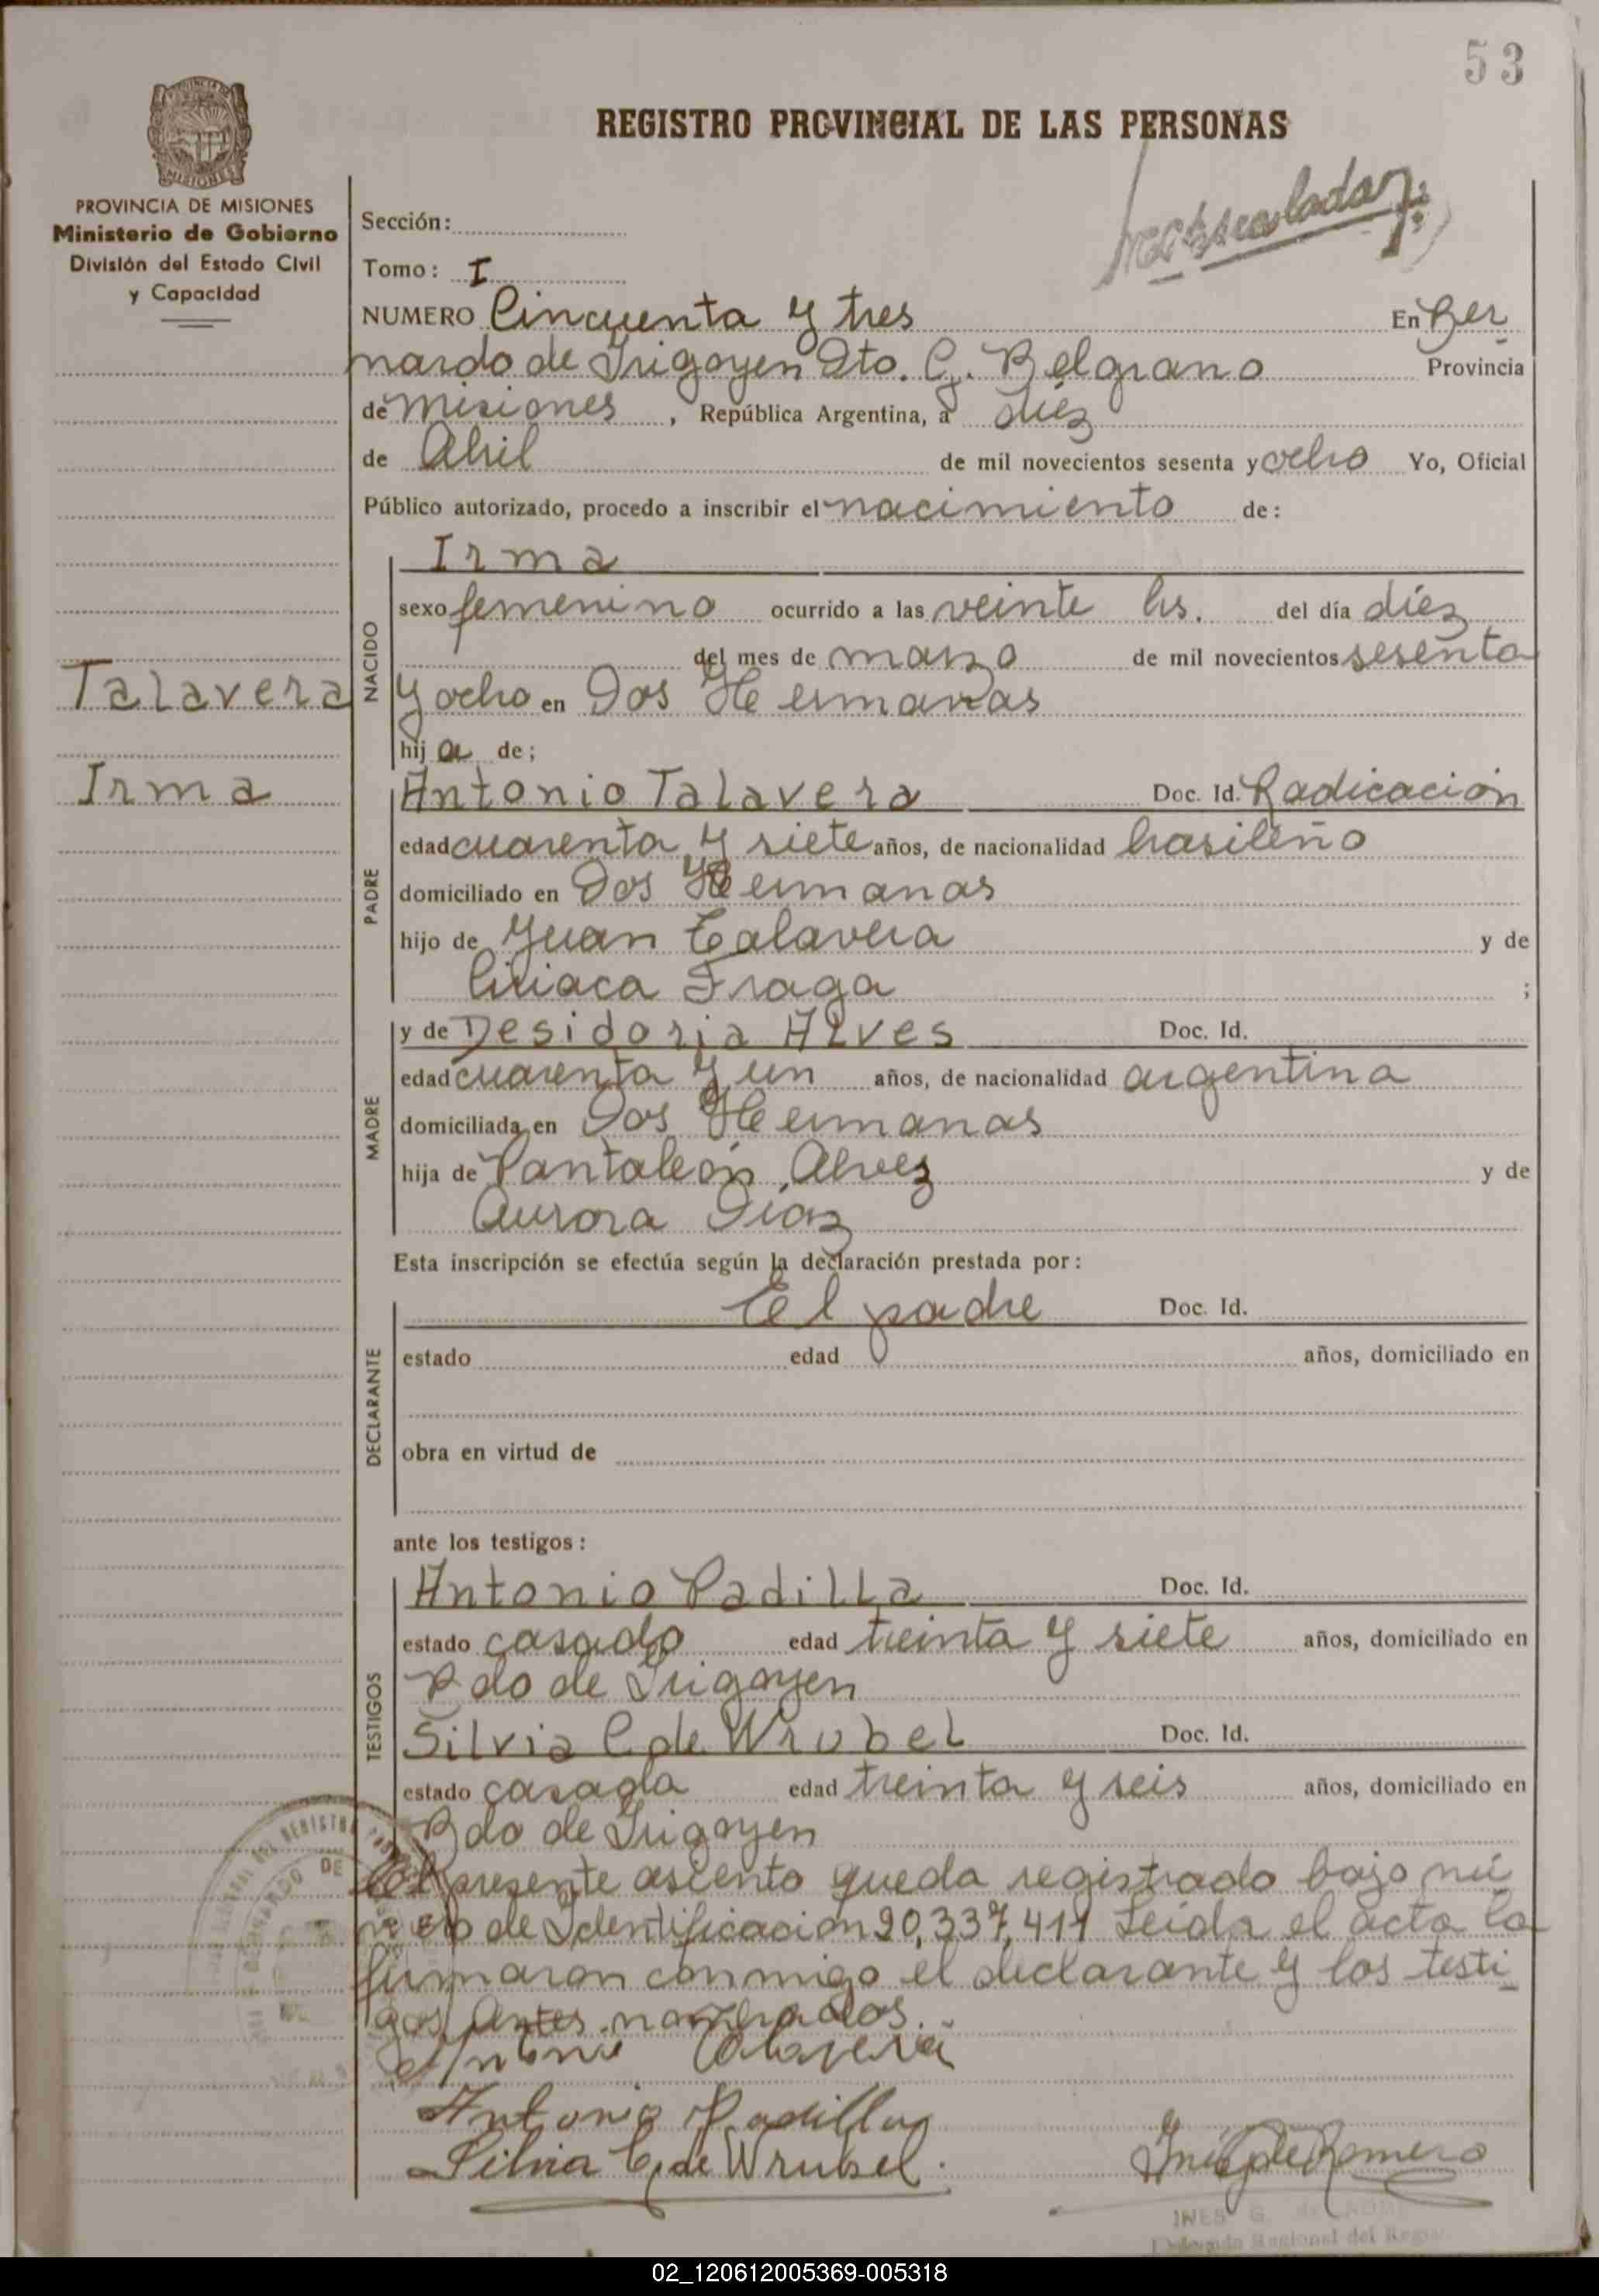 53
REGISTRO PROVINCIAL DE LAS PERSONAS
MISIONES
PROVINCIA DE MISIONES
Ministerio de Gobierno
División del Estado Civil
y Capacidad
Sección:
Tomo: I
NUMERO Cincuenta y tres En Ber
nardo de Irigoyen Dto. G. Belgrano Provincia
de Misiones, República Argentina, a diez
de Abril de mil novecientos sesenta y ocho Yo, Oficial
Público autorizado, procedo a inscribir el nacimiento de:
Talavera
Irma
NACIDO
Irma
sexo femenino ocurrido a las veinte hs. del día diez
del mes de marzo de mil novecientos sesenta
y ocho en Dos Hermanas
hija de;
PADRE
Antonio Talavera Doc. Id. Radicación
edad cuarenta y siete años, de nacionalidad brasileño
domiciliado en Dos Hermanas
hijo de Juan Talavera y de
Ciriaca Fraga ;
MADRE
y de Desidoria Alves Doc. Id.
edad cuarenta y un años, de nacionalidad argentina
domiciliada en Dos Hermanas
hija de Pantaleón Alvez y de
Aurora Diaz
Esta inscripción se efectúa según la declaración prestada por:
DECLARANTE
El padre Doc. Id.
estado edad años, domiciliado en
obra en virtud de
ante los testigos:
TESTIGOS
Antonio Padilla Doc. Id.
estado casado edad treinta y siete años, domiciliado en
Bdo de Irigoyen
Silvia C. de Wrubel Doc. Id.
estado casada edad treinta y seis años, domiciliado en
Bdo de Irigoyen
El presente asiento queda registrado bajo nú
mero de Identificación 20,337,411 Leída el acta la
firmaron conmigo el declarante y los testi
gos antes nombrados.
Antonio Talavera
Antonio Padilla
Silvia C. de Wrubel. Inés G. de Romero
INES G. de ROME
Delegada Regional del Regis
02_120612005369-005318